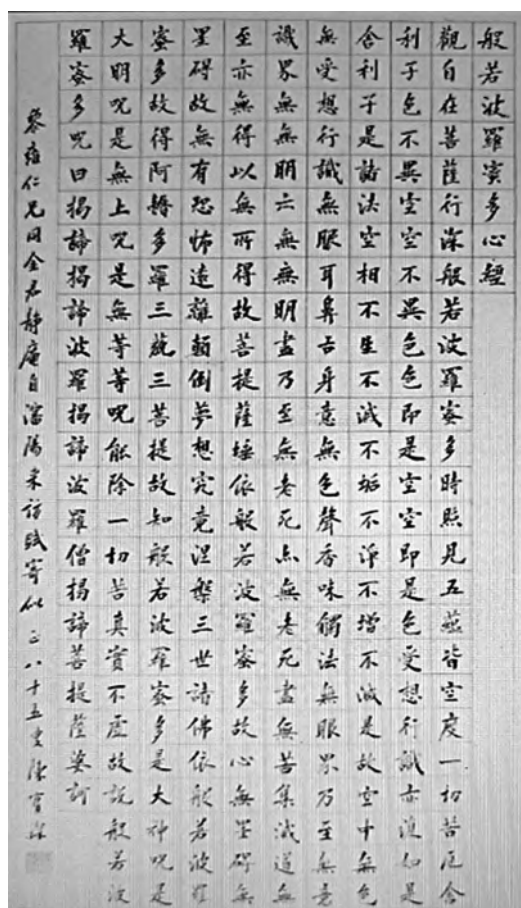 般若波羅蜜多心經
觀自在菩薩行深般若波羅蜜多時照見五蘊皆空度一切苦厄舍
利子色不異空空不異色色即是空空即是色受想行識亦復如是
舍利子是諸法空相不生不滅不垢不淨不增不減是故空中無色
無受想行識無眼耳鼻舌身意無色聲香味觸法無眼界乃至無意
識界無無明亦無無明盡乃至無老死亦無老死盡無苦集滅道無
至亦無得以無所得故菩提薩埵依般若波羅蜜多故心無罣礙無
罣礙故無有恐怖遠離顛倒夢想究竟涅槃三世諸佛依般若波羅
蜜多故得阿耨多羅三藐三菩提故知般若波羅蜜多是大神咒是
大明咒是無上咒是無等等咒能除一切苦真實不虛故說般若波
羅蜜多咒曰揭諦揭諦波羅揭諦波羅僧揭諦菩提薩婆訶
仁兄同金君靜庵自瀋陽來訪賦寄正八十五叟陳寶琛